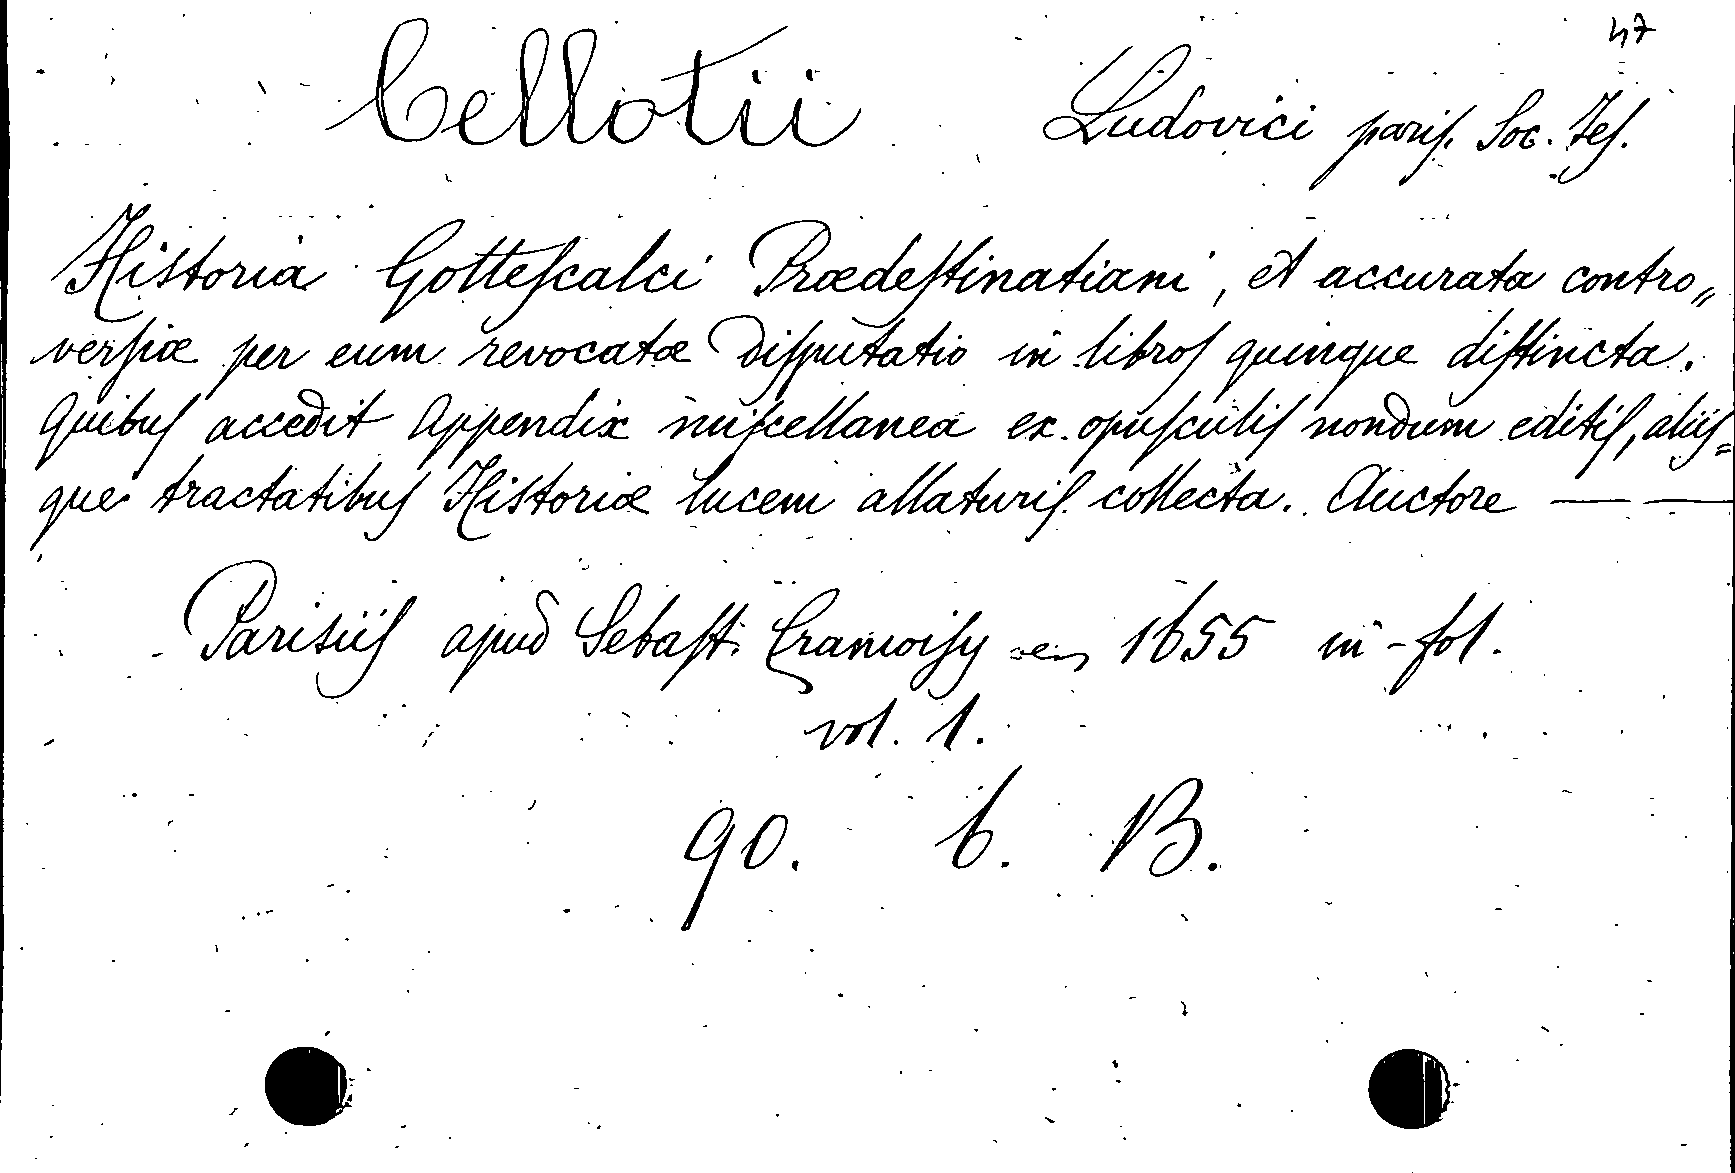 47
Cellotii Ludovici pariſ. Soc. Jeſ.
Historia Gotteſcalci Prædeſtinatiani, et accurata contro„
verſiæ per eum revocatæ Diſputatio in libroſ quinque diſtincta.
Quibuſ accedit Appendix miſcellanea ex opuſculiſ nondum editiſ, aliiſ=
que tractatibuſ Historiæ lucem allaturiſ collecta. Auctore — —
Parisiiſ apud Sebaſt. Cramoiſy 1655 in-fol.
vol. 1.
90. b. B.